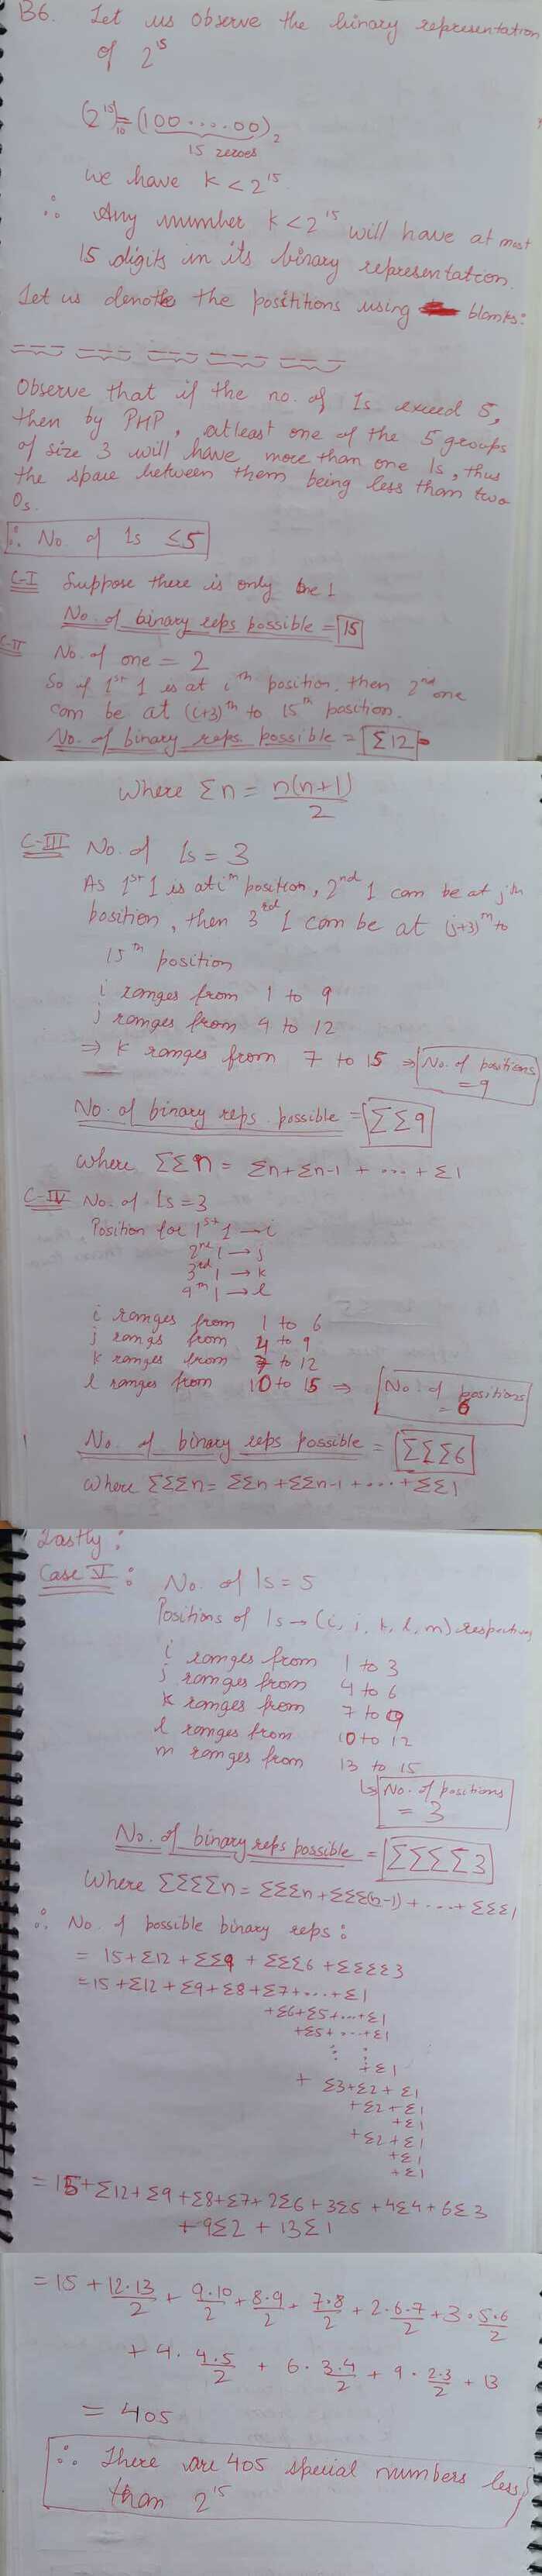 B6. Let us observe the binary representation
of 2^15
(2^15)_10 = (100 ..... 00)_2
15 zeroes
we have k < 2^15
∴ Any number k < 2^15 will have at most
15 digits in its binary representation.
Let us denote the posititions using blanks:
_ _ _ _ _ _ _ _ _ _ _ _ _ _ _
Observe that if the no. of 1s exceed 5,
then by PHP, atleast one of the 5 groups
of size 3 will have more than one 1s, thus
the space between them being less than two
0s.
∴ No. of 1s ≤5
C-I Suppose there is only one 1
No. of binary reps possible = 15
C-II No. of one = 2
So if 1st 1 is at ith position, then 2nd one
can be at (i+3)th to 15th position.
No. of binary reps. possible = Σ12
where Σn = n(n+1)/2
C-III No. of 1s = 3
As 1st 1 is at ith position, 2nd 1 can be at jth
position, then 3rd 1 can be at (j+3)th to
15th position
i ranges from 1 to 9
j ranges from 4 to 12
⇒ k ranges from 7 to 15 ⇒ No. of positions
= 9
No. of binary reps. possible = ΣΣ9
where ΣΣn = Σn+Σn-1 + ... + Σ1
C-IV No. of 1s = 3
Position for 1st 1 → i
2nd 1 → j
3rd 1 → k
4th 1 → l
i ranges from 1 to 6
j rangs from 4 to 9
k ranges from 7 to 12
l ranges from 10 to 15 ⇒ No. of positions
= 6
No. of binary reps possible = ΣΣΣ6
where ΣΣΣn = ΣΣn +ΣΣn-1 + .... + ΣΣ1
Lastly :
Case V : No. of 1s = 5
Positions of 1s → (i, j, k, l, m) respectively
i ranges from 1 to 3
j ranges from 4 to 6
k ranges from 7 to 9
l ranges from 10 to 12
m ranges from 13 to 15
↳ No. of positions
= 3
No. of binary reps possible = ΣΣΣΣ3
Where ΣΣΣΣn = ΣΣΣn + ΣΣΣ(n-1) + ... + ΣΣΣ1
∴ No. of possible binary reps :
= 15 + Σ12 + ΣΣ9 + ΣΣΣ6 + ΣΣΣΣ3
= 15 + Σ12 + Σ9 + Σ8 + Σ7 + ... + Σ1
+Σ6+Σ5+...+Σ1
+Σ5+...+Σ1
⋮ ⋮
+Σ1
+ Σ3+Σ2 + Σ1
+Σ2 + Σ1
+Σ1
+Σ2 + Σ1
+Σ1
+Σ1
= 15+Σ12+Σ9 +Σ8+Σ7+ 2Σ6 + 3Σ5 + 4Σ4 + 6Σ3
+ 9Σ2 + 13Σ1
= 15 + 12·13/2 + 9·10/2 + 8·9/2 + 7·8/2 + 2·6·7/2 + 3·5·6/2
+ 4· 4·5/2 + 6· 3·4/2 + 9· 2·3/2 + 13
= 405
∴ There are 405 special numbers less
than 2^15